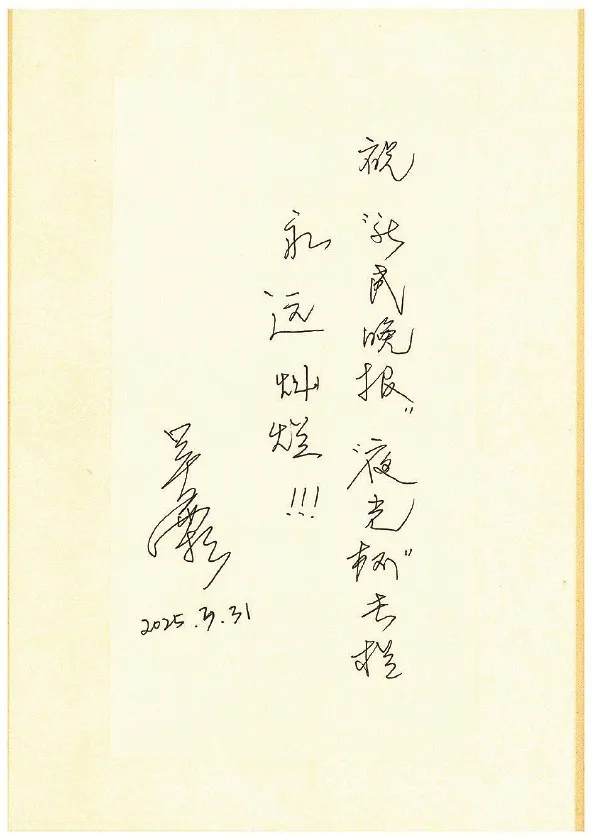 祝“新民晚报”“夜光杯”专栏
永远灿烂!!!
2025.3.31